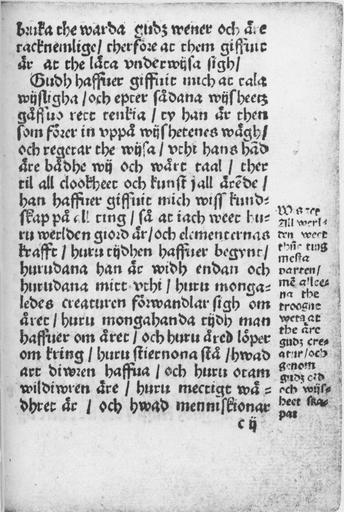 bruka the warda gudz wener och äre
tacknemlige/ therföre at them giffuit
är at the läta vnderwijsa sigh/
Gudh haffuer giffuit mich at tala
wijsligha/och epter sådana wijsheetz
gåffuo rett tenkia/ ty han är then
som förer in vppå wijshetenes wägh/
och regerar the wijsa/ vthi hans häd
äre bådhe wij och wårt taal/ ther
til all clookheet och kunst j all ärēde/
han haffuer giffuit mich wiss kund-
skap på all ting/ så at iach weet hu-
ru werlden giord är/och elementernas
krafft/ huru tijdhen haffuer begynt/
hurudana han är widh endan och
hurudana mitt vthi/ huru monga-
ledes creaturen förwandlar sigh om
året/ huru mongahanda tijdh man
haffuer om året/ och huru åred löper
om kring/ huru stiernona stå /hwad
art diwren haffua/ och huru otam
wildiwren äre/ huru mectigt wä-
dhret är / och hwad menniskionar
c ij
All werl-
den weet
thūc ting
mesta
parten/
mē allee-
na the
troogne
weta at
the äre
gudz cre-
atur/och
genom
gudz ord
och wijs-
heet ska-
pat